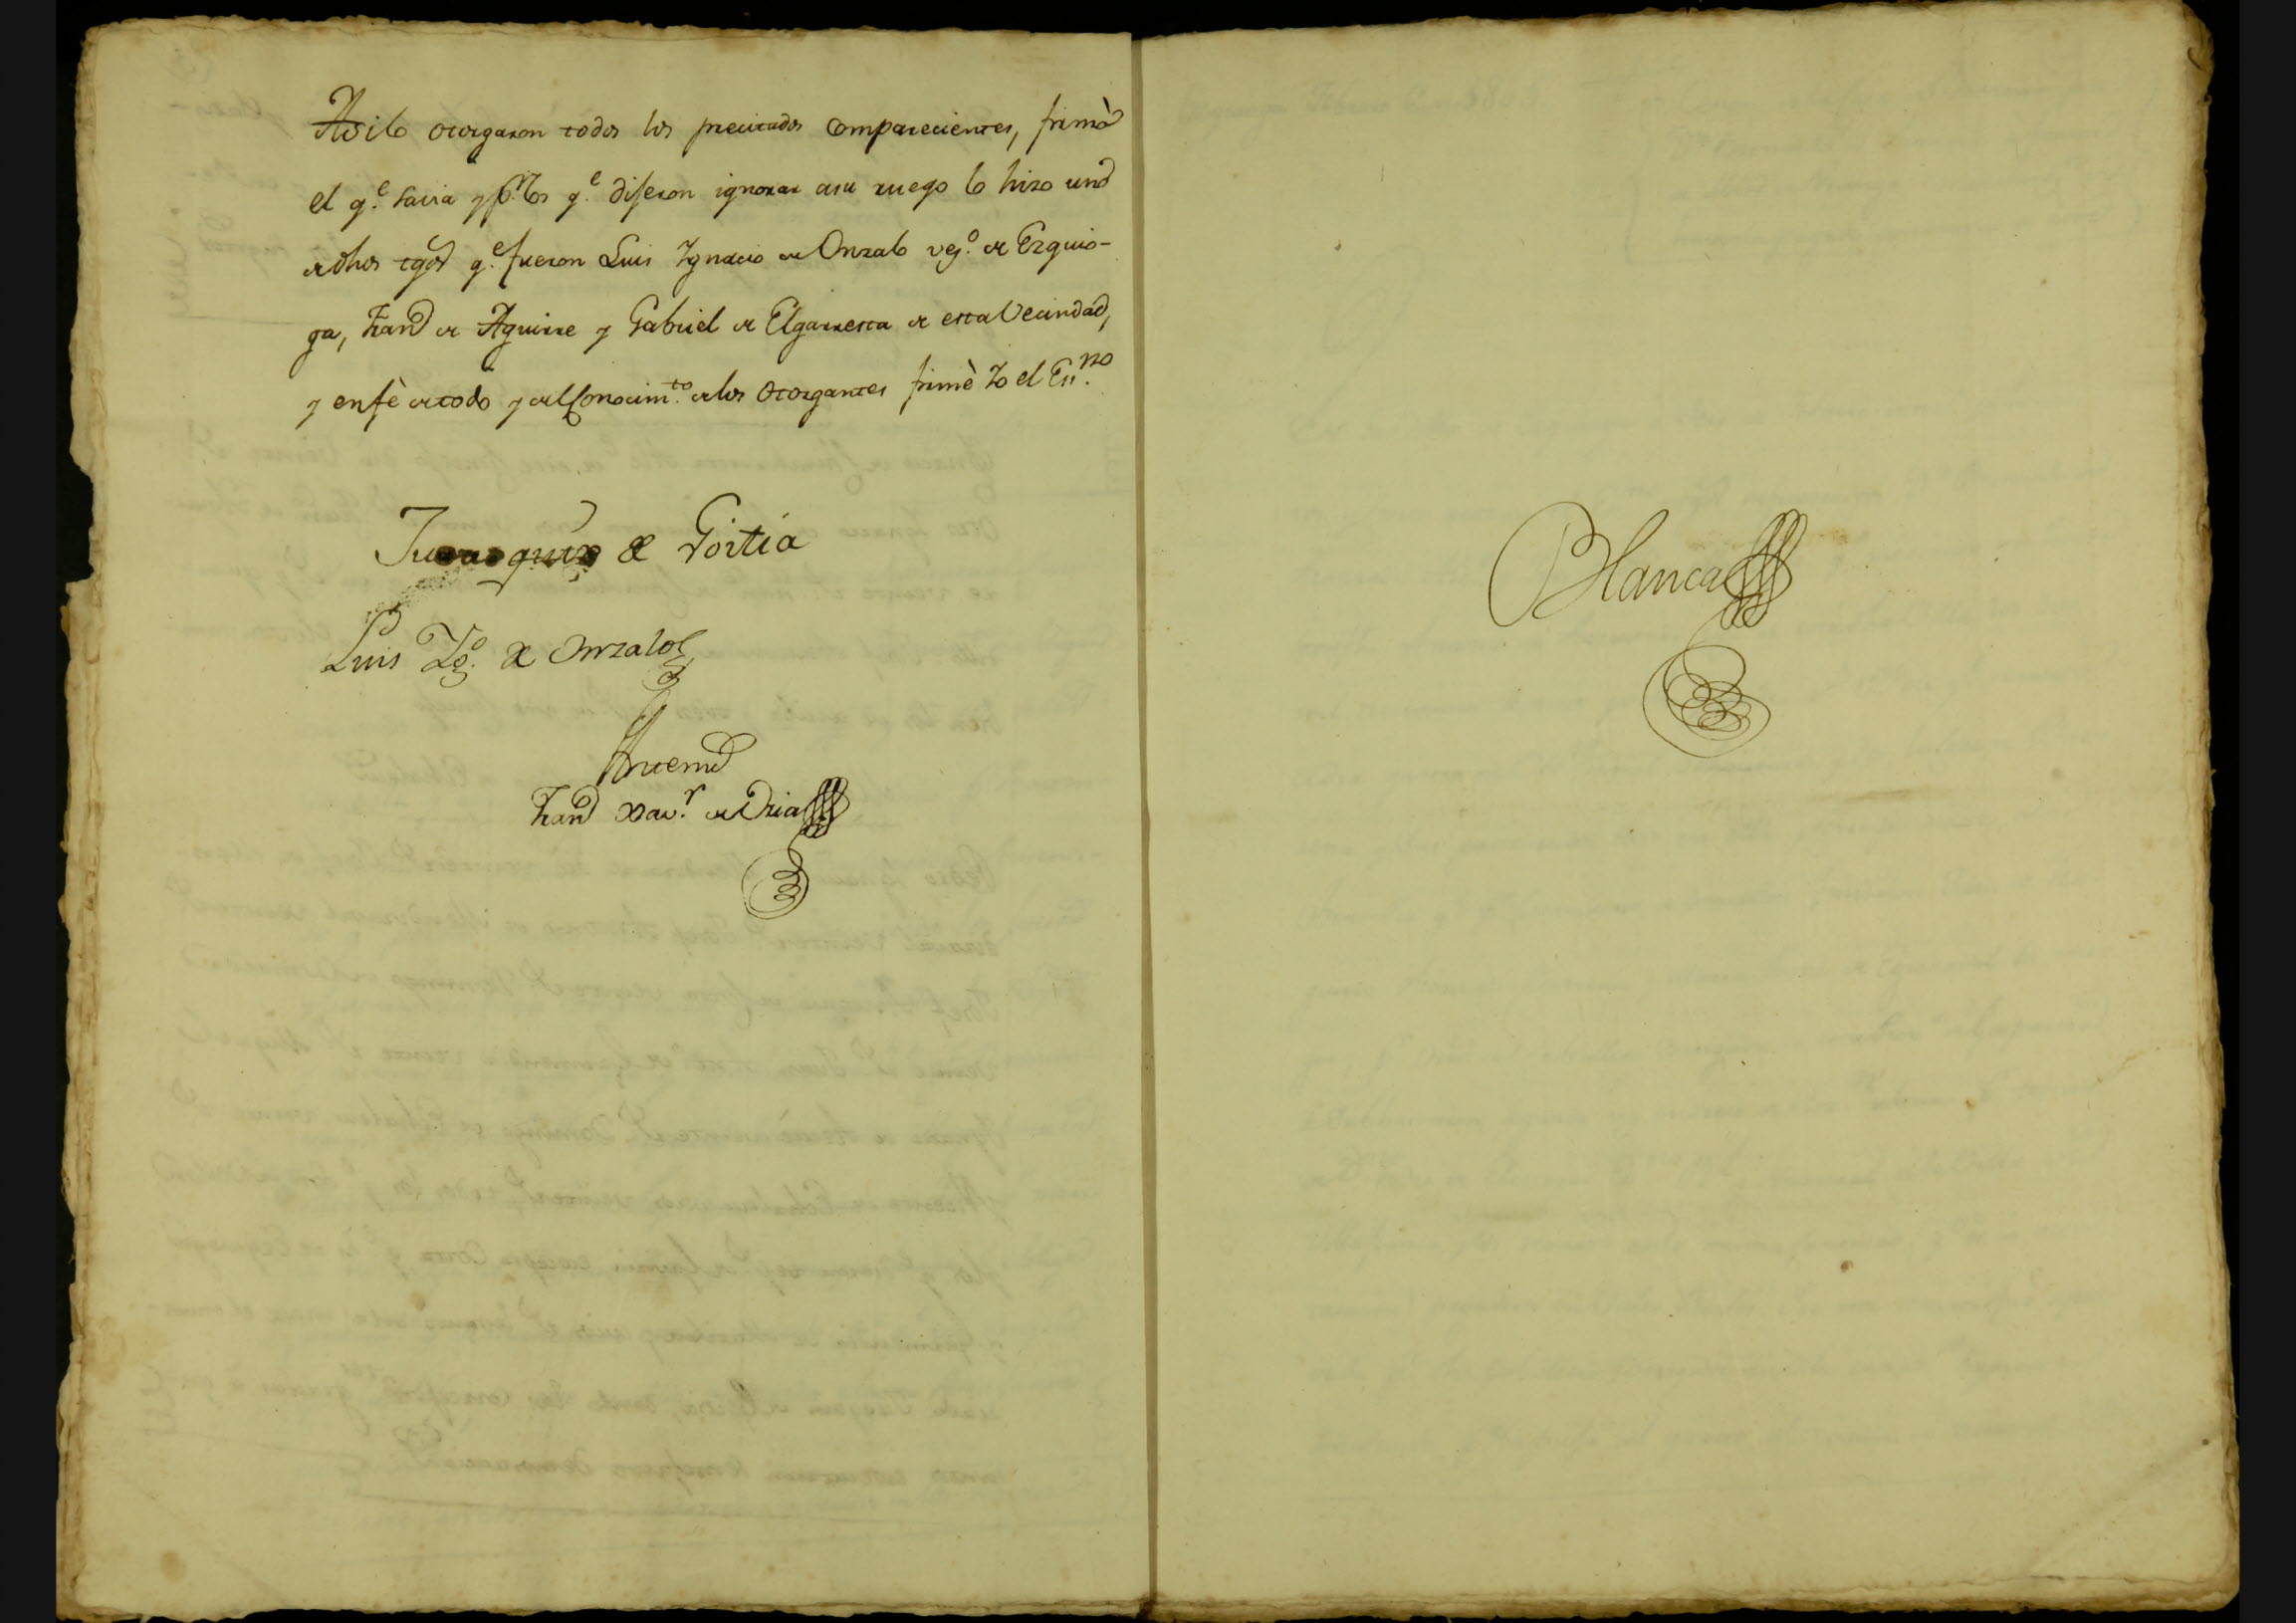 Asi lo otorgaron todos los precitados comparecientes, firmò
el q.e savia y p.r los q.e dijeron ignorar asu ruego lo hizo uno
de dhos tgos q.e fueron Luis Ygnacio de Onzalo vez.o de Ezquio-
ga, Fran.co de Aguirre y Gabriel de Elgarresta de esta Vecindad,
y enfè de todo y del Conocim.to de los Otorgantes firmè Yo el Es.no
de Goitia
Luis Ig.o de Onzalo
Antemi
Fran.co Xav.r de Oria
Blanca